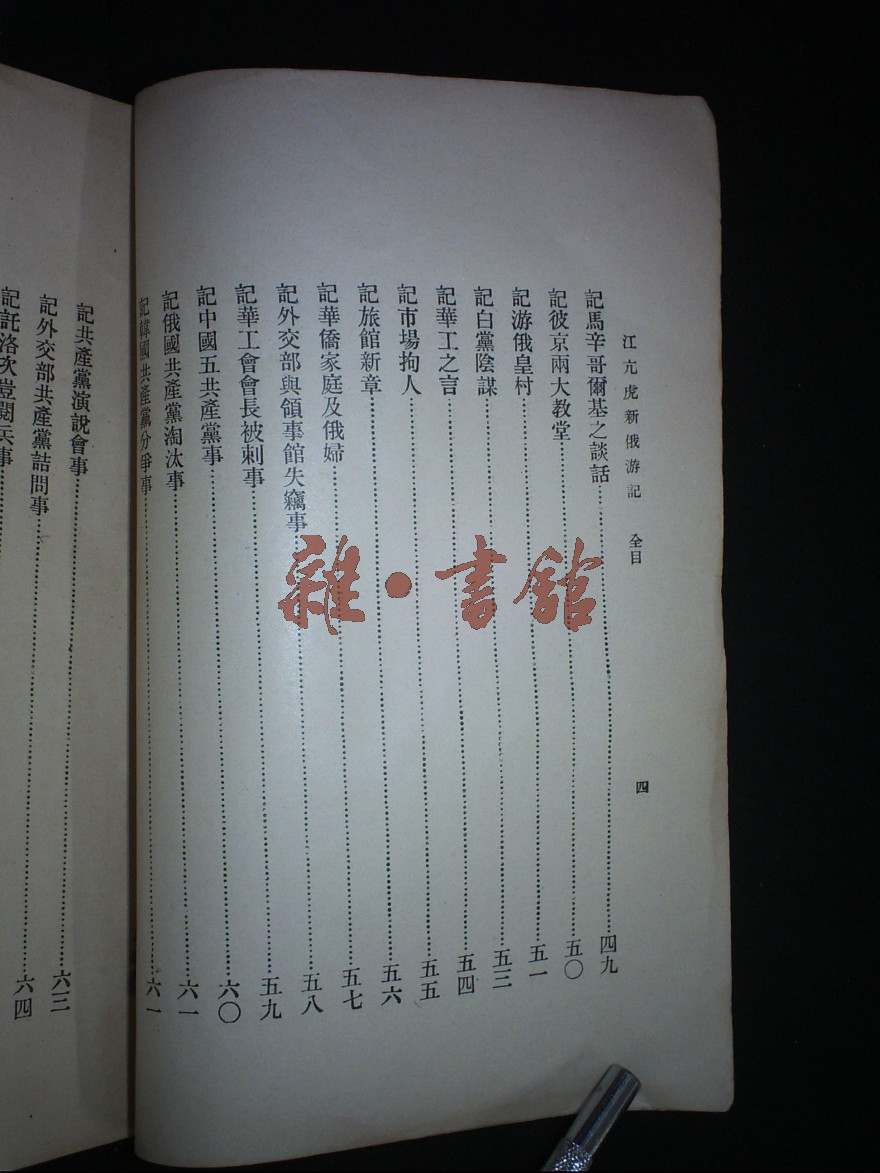 江亢虎新俄游記 全目
四
記馬辛哥爾基之談話 四九
記彼京兩大教堂 五〇
記游俄皇村 五一
記白黨陰謀 五三
記華工之言 五四
記市場拘人 五五
記旅館新章 五六
記華僑家庭及俄婦 五七
記外交部與領事館失竊事 五八
記華工會會長被刺事 五九
記中國五共產黨事 六〇
記俄國共產黨淘汰事 六一
記韓國共產黨分爭事 六一
記共產黨演說會事 六三
記外交部共產黨詰問事 六四
記託洛次豈閱兵事
雜·書館